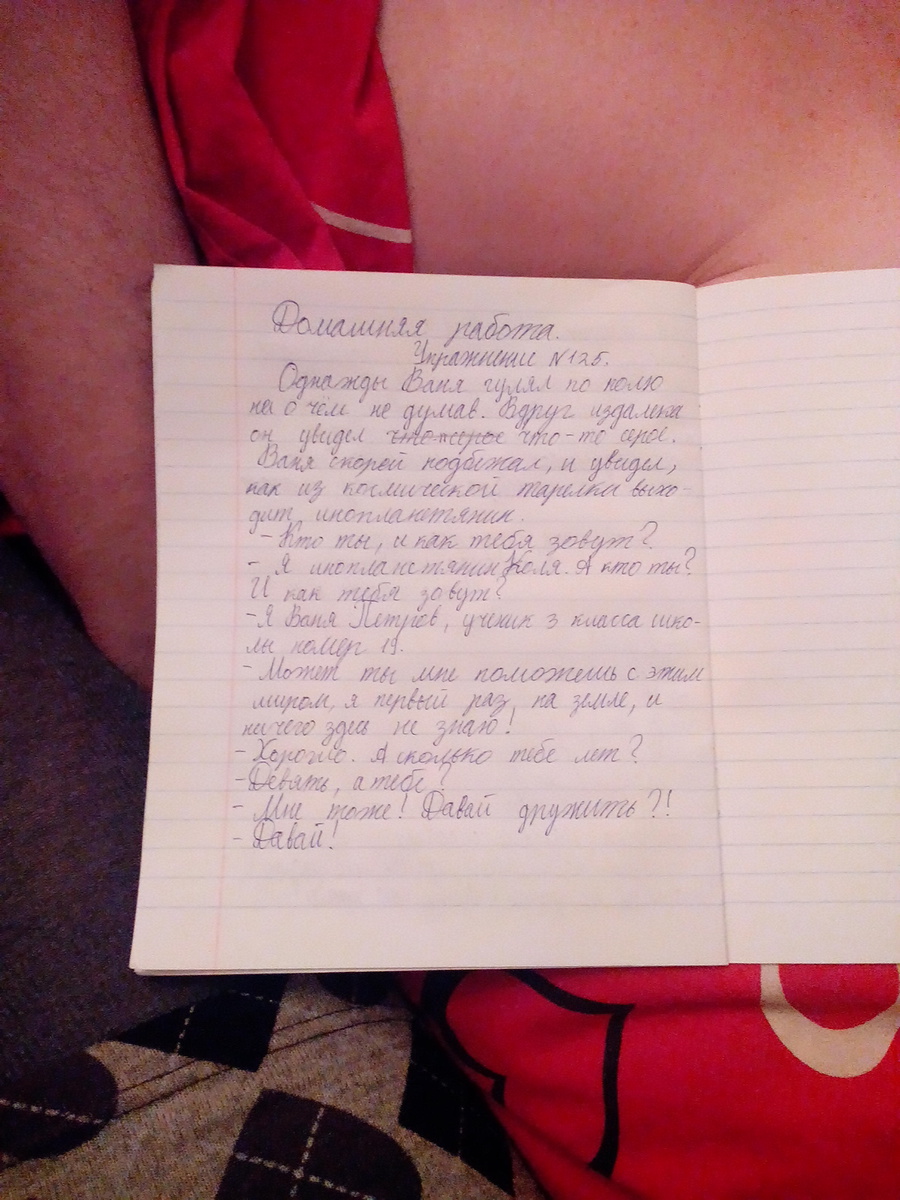 Домашняя работа.
Упражнение №125.
Однажды Ваня гулял по полю
ни о чём не думав. Вдруг издалека
он увидел что-то серое.
Ваня скорей подбежал, и увидел,
как из космической тарелки выхо-
дит инопланетянин.
- Кто ты, и как тебя зовут?
- Я инопланетянин Коля. А кто ты?
И как тебя зовут?
- Я Ваня Петров, ученик 3 класса шко-
лы номер 19.
- Может ты мне поможешь с этим
миром, я первый раз, на земле, и
ничего здесь не знаю!
- Хорошо. А сколько тебе лет?
- Девять, а тебе?
- Мне тоже! Давай дружить?!
- Давай!